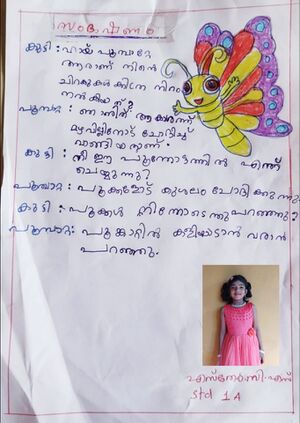 സംഭാഷണം
കുട്ടി : ഹായ് പൂമ്പാറ്റേ
ആരാണ് നിന്റെ
ചിറകുകൾക്കിത്ര നിറം
നൽകിയത്?
പൂമ്പാറ്റ : ഞാനിത് ആകാശത്ത്
മഴവില്ലിനോട് ചോദിച്ച്
വാങ്ങിയതാണ്.
കുട്ടി : നീ ഈ പൂന്തോട്ടത്തിൽ എന്ത്
ചെയ്യുന്നു?
പൂമ്പാറ്റ : പൂക്കളോട് കുശലം ചോദിക്കുന്നു
കുട്ടി : പൂക്കൾ നിന്നോടെന്തുപറഞ്ഞു?
പൂമ്പാറ്റ : പൂക്കാറ്റിൽ കളിയാടാൻ വരാൻ
പറഞ്ഞു.
എസ്തേർ.സി.എസ്
Std 1A